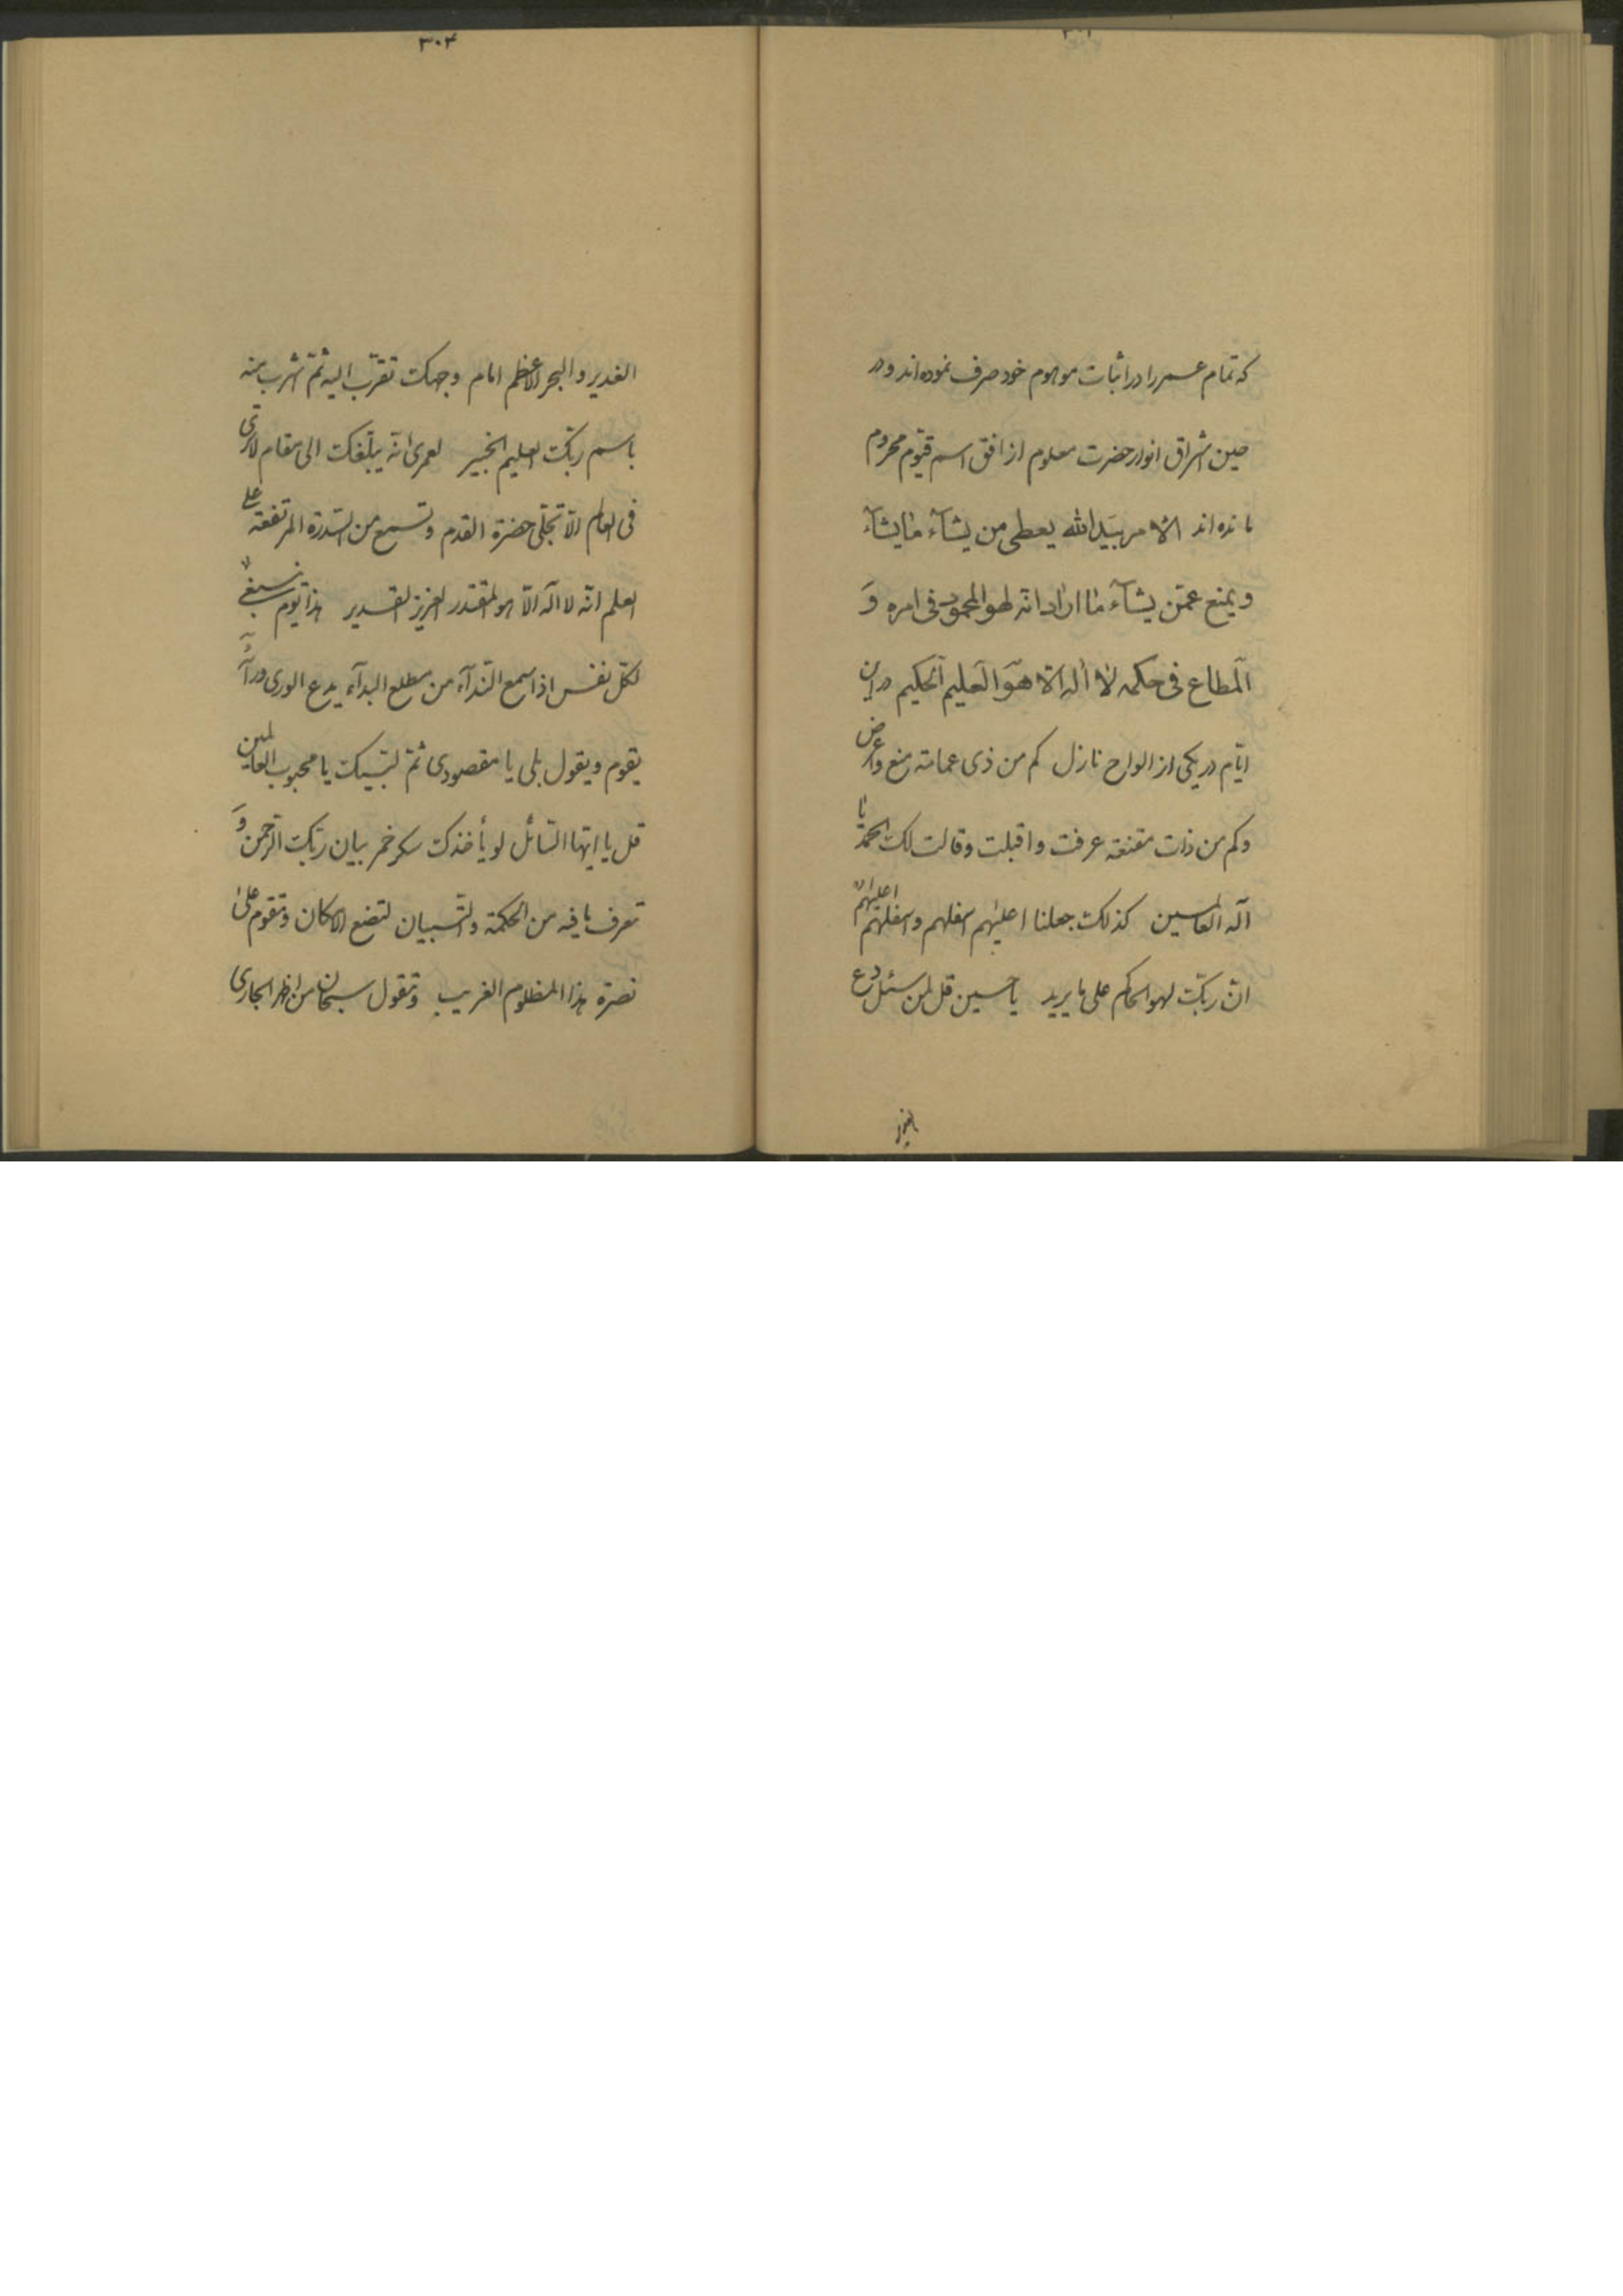 که تمام عمر را در اثبات موهوم خود صرف نموده‌اند و در
حین اشراق انوار حضرت معلوم از افق اسم قیّوم محروم
مانده‌اند الامر بید الله یعطی من یشآء ما یشآء
و یمنع عمّن یشآء ما اراد انّه لهو المحمود فی امره و
المطاع فی حکمه لا اله الّا هو العلیم الحکیم در این
ایّام در یکی از الواح نازل کم من ذی عمامة منع و اعرض
و کم من ذات مقنعة عرفت و اقبلت و قالت لک الحمد یا
اله العالمین کذلک جعلنا اعلیهم اسفلهم و اسفلهم اعلیهم
انّ ربّک لهو الحاکم علی ما یرید یا حسین قل لمن سئل دع
الغدیر
۳۰۴
الغدیر و البحر الاعظم امام وجهک تقرّب الیه ثمّ اشرب منه
باسم ربّک العلیم الخبیر لعمری انّه یبلّغک الی مقام لا تری
فی العالم الّا تجلّی حضرة القدم و تسمع من السّدرة المرتفعة علی
العلم انّه لا اله الّا هو المقتدر العزیز القدیر هذا یوم ینبغی
لکلّ نفس اذا سمع النّدآء من مطلع البدآء یدع الوری ورآئه
یقوم و یقول بلی یا مقصودی ثمّ لبّیک یا محبوب العالمین
قل یا ایّها السّائل لو یأخذک سکر خمر بیان ربّک الرّحمن و
تعرف ما فیه من الحکمة و التّبیان لتضع الامکان و تقوم علی
نصرة هذا المظلوم الغریب و تقول سبحان من اظهر الجاری